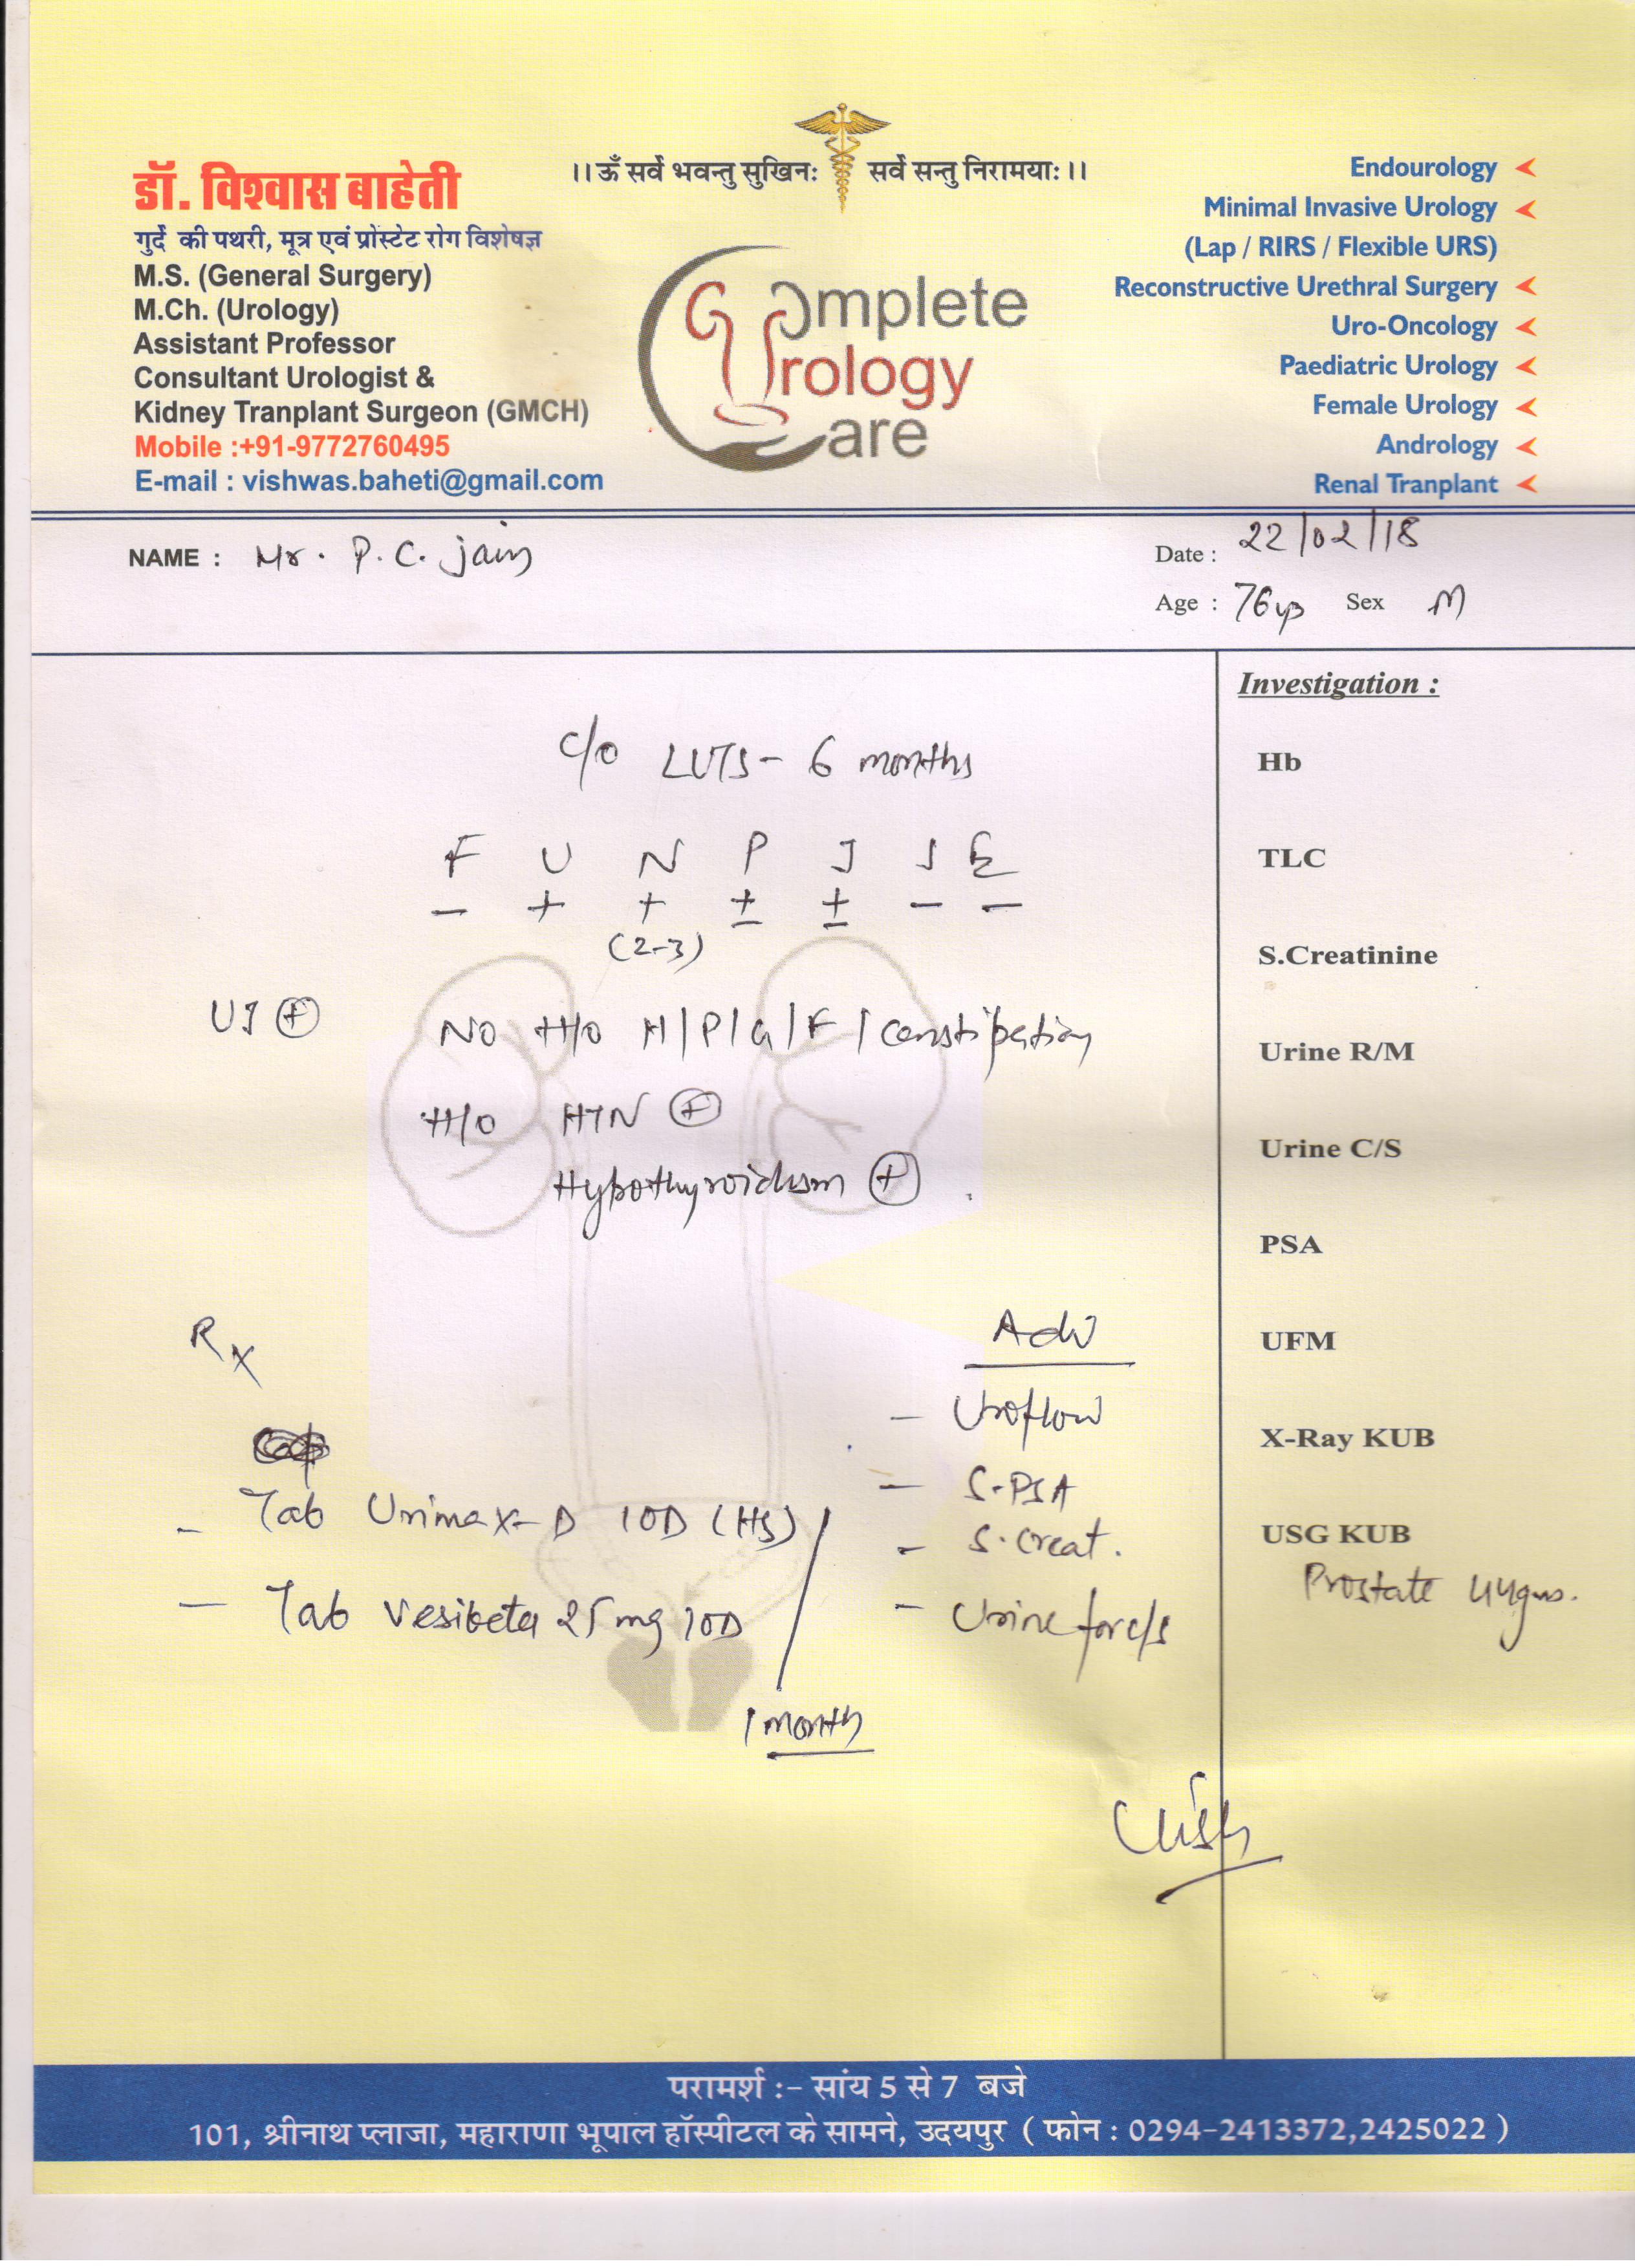 ।। ॐ सर्वे भवन्तु सुखिनः सर्वे सन्तु निरामयाः ।।
डॉ. विश्वास बाहेती
गुर्दे की पथरी, मूत्र एवं प्रोस्टेट रोग विशेषज्ञ
M.S. (General Surgery)
M.Ch. (Urology)
Assistant Professor
Consultant Urologist &
Kidney Tranplant Surgeon (GMCH)
Mobile :+91-9772760495
E-mail : vishwas.baheti@gmail.com
Complete
Urology
Care
Endourology
Minimal Invasive Urology
(Lap / RIRS / Flexible URS)
Reconstructive Urethral Surgery
Uro-Oncology
Paediatric Urology
Female Urology
Andrology
Renal Tranplant
NAME : Mr. P. C. jain
Date : 22/02/18
Age : 76 yrs Sex M
c/o LUTS - 6 months
F U N P I S E
- + + ± ± - -
(2-3)
UI ⊕
NO H/o H/P/G/F/constipation
H/o HTN ⊕
Hypothyroidism ⊕
Rx
- Tab Urimax-D 1OD (HS)
- Tab Vesibeta 25 mg 1OD
1 month
Adv
- Uroflow
- S-PSA
- S. creat.
- Urine for c/s
Investigation :
Hb
TLC
S.Creatinine
Urine R/M
Urine C/S
PSA
UFM
X-Ray KUB
USG KUB
Prostate 44gms.
परामर्श :- सांय 5 से 7 बजे
101, श्रीनाथ प्लाजा, महाराणा भूपाल हॉस्पीटल के सामने, उदयपुर ( फोन : 0294-2413372,2425022 )